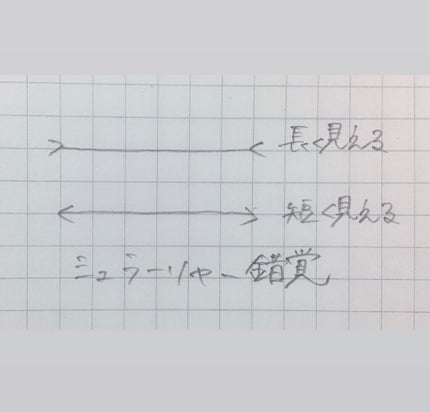 長く見える
短く見える
ミュラーリヤー錯覚